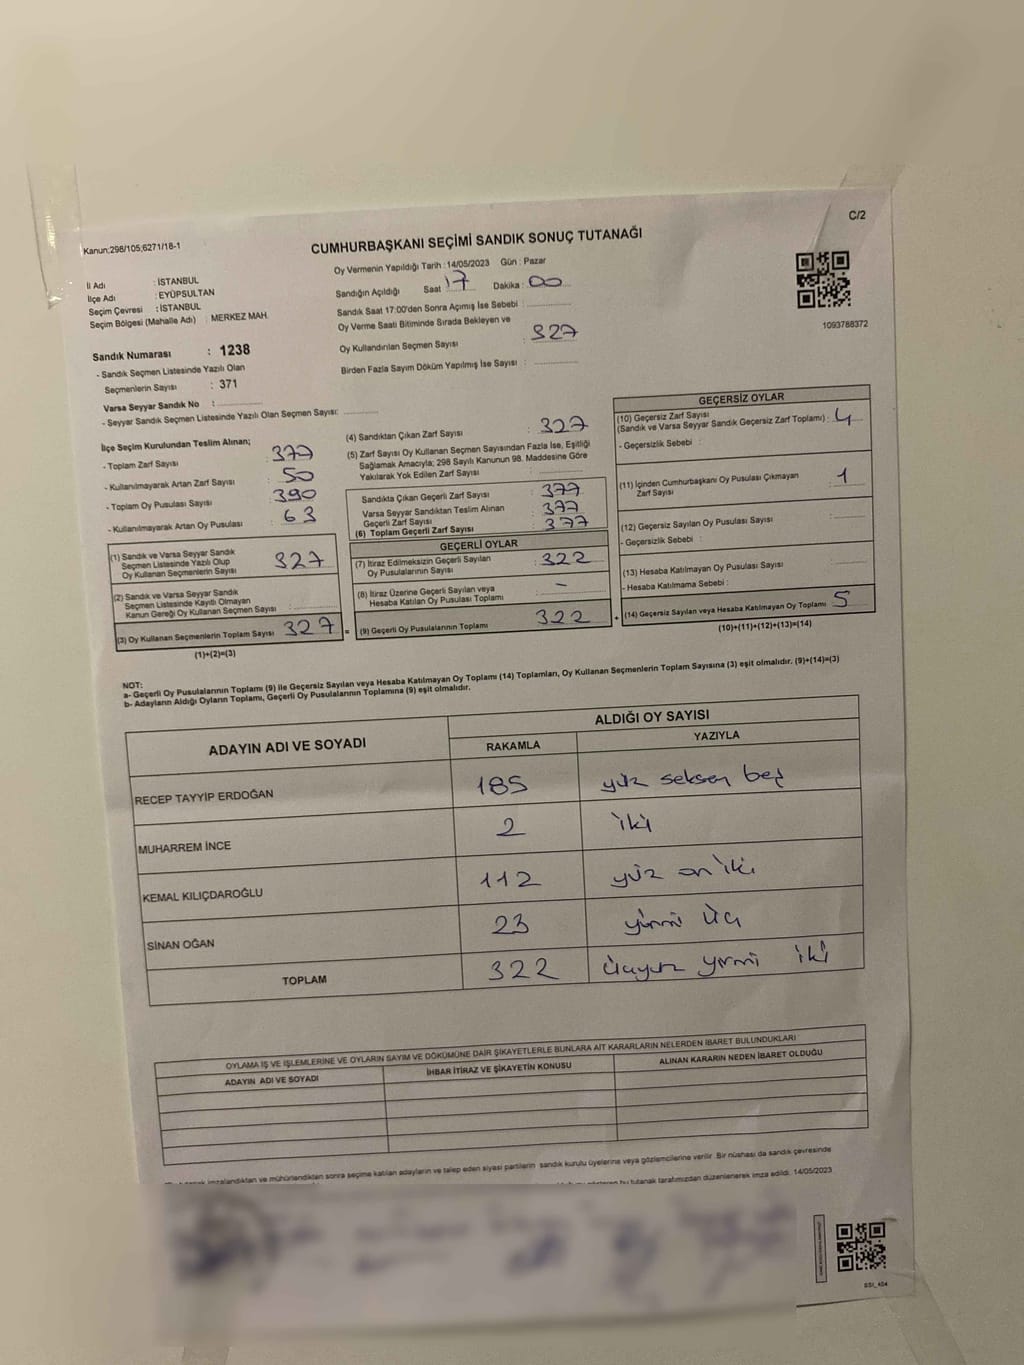 Kanun;298/105;6271/18-1
C/2
CUMHURBAŞKANI SEÇİMİ SANDIK SONUÇ TUTANAĞI
İl Adı : İSTANBUL
İlçe Adı : EYÜPSULTAN
Seçim Çevresi : İSTANBUL
Seçim Bölgesi (Mahalle Adı) : MERKEZ MAH.
Sandık Numarası : 1238
- Sandık Seçmen Listesinde Yazılı Olan
Seçmenlerin Sayısı : 371
Varsa Seyyar Sandık No :
- Seyyar Sandık Seçmen Listesinde Yazılı Olan Seçmen Sayısı:
Oy Vermenin Yapıldığı Tarih : 14/05/2023 Gün : Pazar
Sandığın Açıldığı Saat 17 Dakika : 00
Sandık Saat 17:00'den Sonra Açımış İse Sebebi :
Oy Verme Saati Bitiminde Sırada Bekleyen ve
Oy Kullandırılan Seçmen Sayısı : 327
Birden Fazla Sayım Döküm Yapılmış İse Sayısı :
1093788372
İlçe Seçim Kurulundan Teslim Alınan;
- Toplam Zarf Sayısı : 377
- Kullanılmayarak Artan Zarf Sayısı : 50
- Toplam Oy Pusulası Sayısı : 390
- Kullanılmayarak Artan Oy Pusulası : 63
(1) Sandık ve Varsa Seyyar Sandık
Seçmen Listesinde Yazılı Olup
Oy Kullanan Seçmenlerin Sayısı 327
(2) Sandık ve Varsa Seyyar Sandık
Seçmen Listesinde Kayıtlı Olmayan
Kanun Gereği Oy Kullanan Seçmen Sayısı :
(3) Oy Kullanan Seçmenlerin Toplam Sayısı 327 =
(1)+(2)=(3)
(4) Sandıktan Çıkan Zarf Sayısı : 327
(5) Zarf Sayısı Oy Kullanan Seçmen Sayısından Fazla İse, Eşitliği
Sağlamak Amacıyla; 298 Sayılı Kanunun 98. Maddesine Göre
Yakılarak Yok Edilen Zarf Sayısı :
Sandıkta Çıkan Geçerli Zarf Sayısı : 377
Varsa Seyyar Sandıktan Teslim Alınan
Geçerli Zarf Sayısı : 377
(6) Toplam Geçerli Zarf Sayısı : 377
GEÇERLİ OYLAR
(7) İtiraz Edilmeksizin Geçerli Sayılan
Oy Pusulalarının Sayısı : 322
(8) İtiraz Üzerine Geçerli Sayılan veya
Hesaba Katılan Oy Pusulası Toplamı : -
(9) Geçerli Oy Pusulalarının Toplamı : 322 +
GEÇERSİZ OYLAR
(10) Geçersiz Zarf Sayısı
(Sandık ve Varsa Seyyar Sandık Geçersiz Zarf Toplamı) : 4
- Geçersizlik Sebebi :
(11) İçinden Cumhurbaşkanı Oy Pusulası Çıkmayan
Zarf Sayısı : 1
(12) Geçersiz Sayılan Oy Pusulası Sayısı :
- Geçersizlik Sebebi :
(13) Hesaba Katılmayan Oy Pusulası Sayısı :
- Hesaba Katılmama Sebebi :
(14) Geçersiz Sayılan veya Hesaba Katılmayan Oy Toplamı : 5
(10)+(11)+(12)+(13)=(14)
NOT:
a- Geçerli Oy Pusulalarının Toplamı (9) ile Geçersiz Sayılan veya Hesaba Katılmayan Oy Toplamı (14) Toplamları, Oy Kullanan Seçmenlerin Toplam Sayısına (3) eşit olmalıdır. (9)+(14)=(3)
b- Adayların Aldığı Oyların Toplamı, Geçerli Oy Pusulalarının Toplamına (9) eşit olmalıdır.
ADAYIN ADI VE SOYADI ALDIĞI OY SAYISI
RAKAMLA YAZIYLA
RECEP TAYYİP ERDOĞAN 185 yüz seksen beş
MUHARREM İNCE 2 iki
KEMAL KILIÇDAROĞLU 112 yüz on iki
SİNAN OĞAN 23 yirmi üç
TOPLAM 322 üçyüz yirmi iki
OYLAMA İŞ VE İŞLEMLERİNE VE OYLARIN SAYIM VE DÖKÜMÜNE DAİR ŞİKAYETLERLE BUNLARA AİT KARARLARIN NELERDEN İBARET BULUNDUKLARI
ADAYIN ADI VE SOYADI İHBAR İTİRAZ VE ŞİKAYETİN KONUSU ALINAN KARARIN NEDEN İBARET OLDUĞU
imzalandıktan ve mühürlendikten sonra seçime katılan adayların ve talep eden siyasi partilerin sandık kurulu üyelerine veya gözlemcilerine verilir. Bir nüshası da sandık çevresinde
bu tutanak tarafımızdan düzenlenerek imza edildi. 14/05/2023
SSI_404